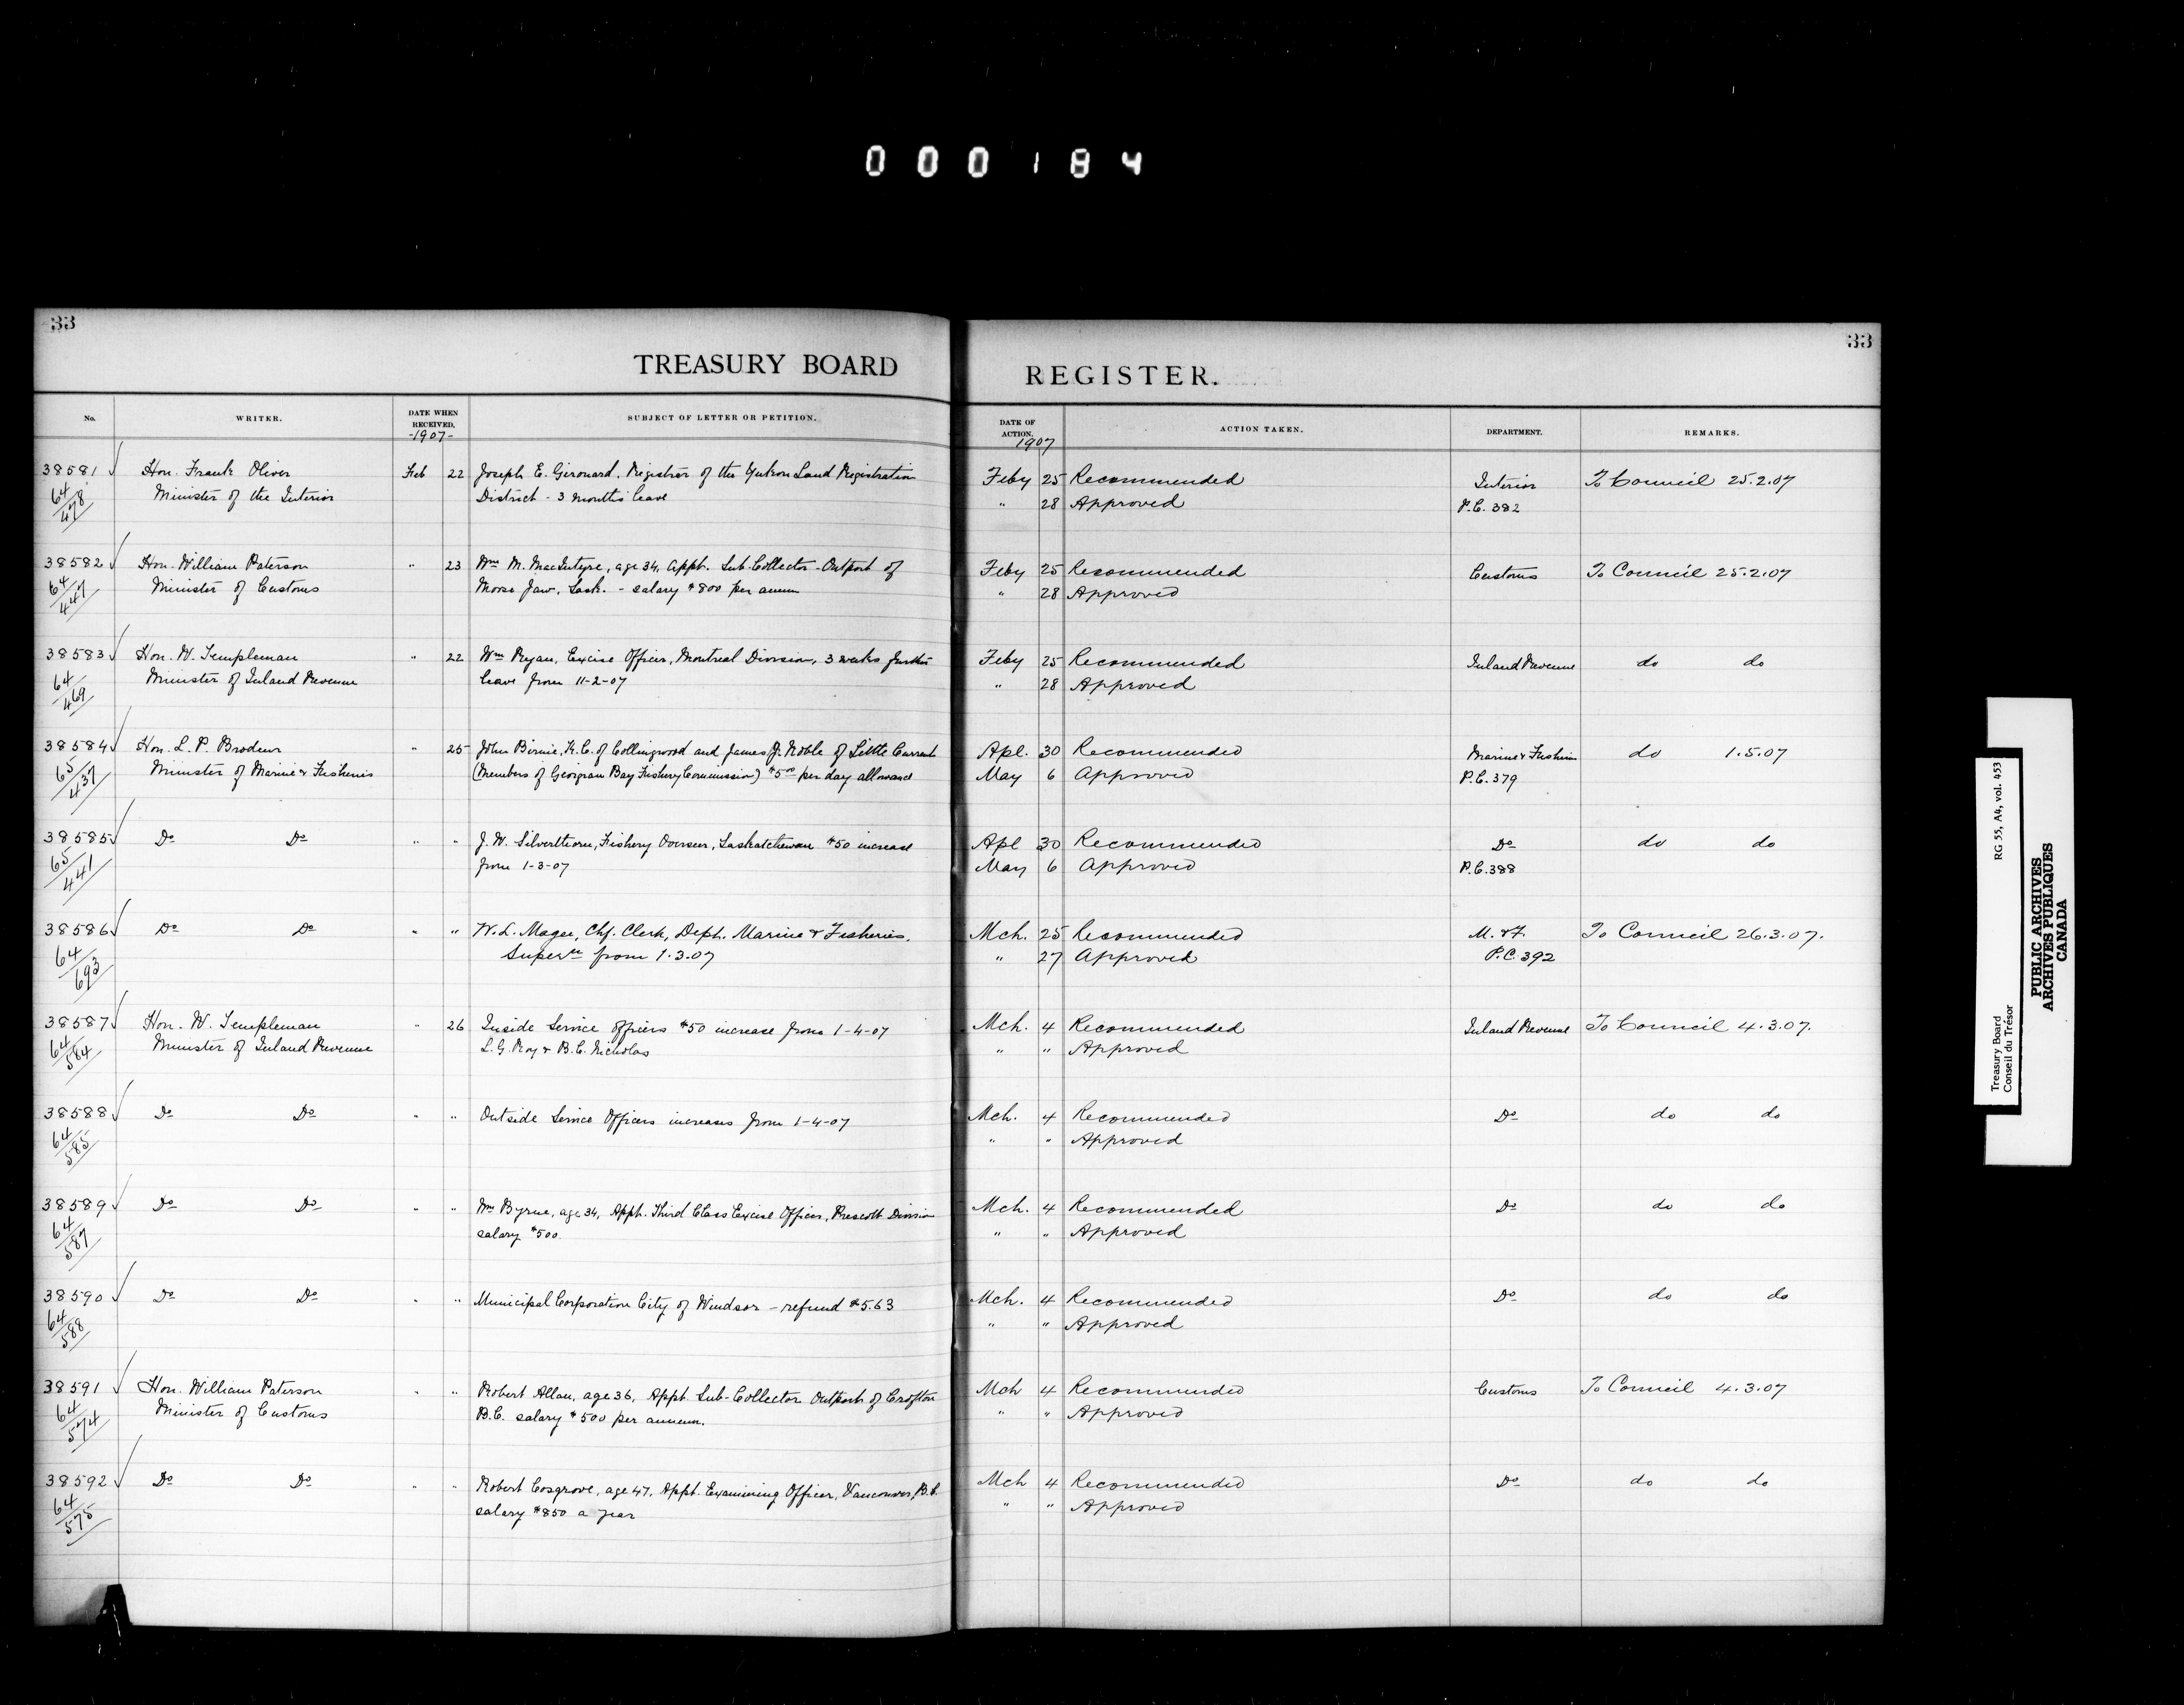 000184
33
33
TREASURY BOARD REGISTER.
No. WRITER. DATE WHEN RECEIVED. SUBJECT OF LETTER OR PETITION. DATE OF ACTION. ACTION TAKEN. DEPARTMENT. REMARKS.
-1907- 1907
38581 Hon. Frank Oliver Feb 22 Joseph E. Girouard, Registrar of the Yukon Land Registration Feby 25 Recommended Interior To Council 25.2.07
64/478 Minister of the Interior District - 3 months leave " 28 Approved P.C. 382
38582 Hon. William Paterson " 23 Wm M. MacIntyre, age 34, Appt. Sub-Collector - Outport of Feby 25 Recommended Customs To Council 25.2.07
64/447 Minister of Customs Moose Jaw, Sask. - salary $800 per annum " 28 Approved
38583 Hon. W. Templeman " 22 Wm Ryan, Excise Officer, Montreal Division, 3 weeks further Feby 25 Recommended Inland Revenue do do
64/469 Minister of Inland Revenue leave from 11-2-07 " 28 Approved
38584 Hon. L. P. Brodeur " 25 John Birnie, K.C. of Collingwood and James J. Noble of Little Current Apl. 30 Recommended Marine & Fisheries do 1.5.07
65/437 Minister of Marine & Fisheries (Members of Georgian Bay Fishery Commission) $5.00 per day allowance May 6 Approved P.C. 379
38585 Do Do " " J. W. Silverthorn, Fishery Overseer, Saskatchewan $50 increase Apl 30 Recommended Do do do
65/441 from 1-3-07 May 6 Approved P.C. 388
38586 Do Do " " W. L. Magee, Chf. Clerk, Dept. Marine & Fisheries, Mch. 25 Recommended M. & F. To Council 26.3.07.
64/693 Super'n from 1.3.07 " 27 Approved P.C. 392
38587 Hon. W. Templeman " 26 Inside Service officers $50 increase from 1-4-07 Mch. 4 Recommended Inland Revenue To Council 4.3.07.
64/584 Minister of Inland Revenue L. G. Roy & B. C. Nicholas " " Approved
38588 Do Do " " Outside Service Officers increases from 1-4-07 Mch. 4 Recommended Do do do
64/585 " " Approved
38589 Do Do " " Wm Byrne, age 34, Appt. Third Class Excise Officer, Prescott Division Mch. 4 Recommended Do do do
64/587 salary $500. " " Approved
38590 Do Do " " Municipal Corporation City of Windsor - refund $5.63 Mch. 4 Recommended Do do do
64/588 " " Approved
38591 Hon. William Paterson " " Robert Allan, age 36, Appt. Sub-Collector Outport of Crofton Mch 4 Recommended Customs To Council 4.3.07
64/574 Minister of Customs B.C. salary $500 per annum. " " Approved
38592 Do Do " " Robert Cosgrove, age 47, Appt. Examining Officer, Vancouver, B.C. Mch 4 Recommended Do do do
64/575 salary $850 a year " " Approved
Treasury Board RG 55, A4, vol. 453
Conseil du Trésor
PUBLIC ARCHIVES
ARCHIVES PUBLIQUES
CANADA